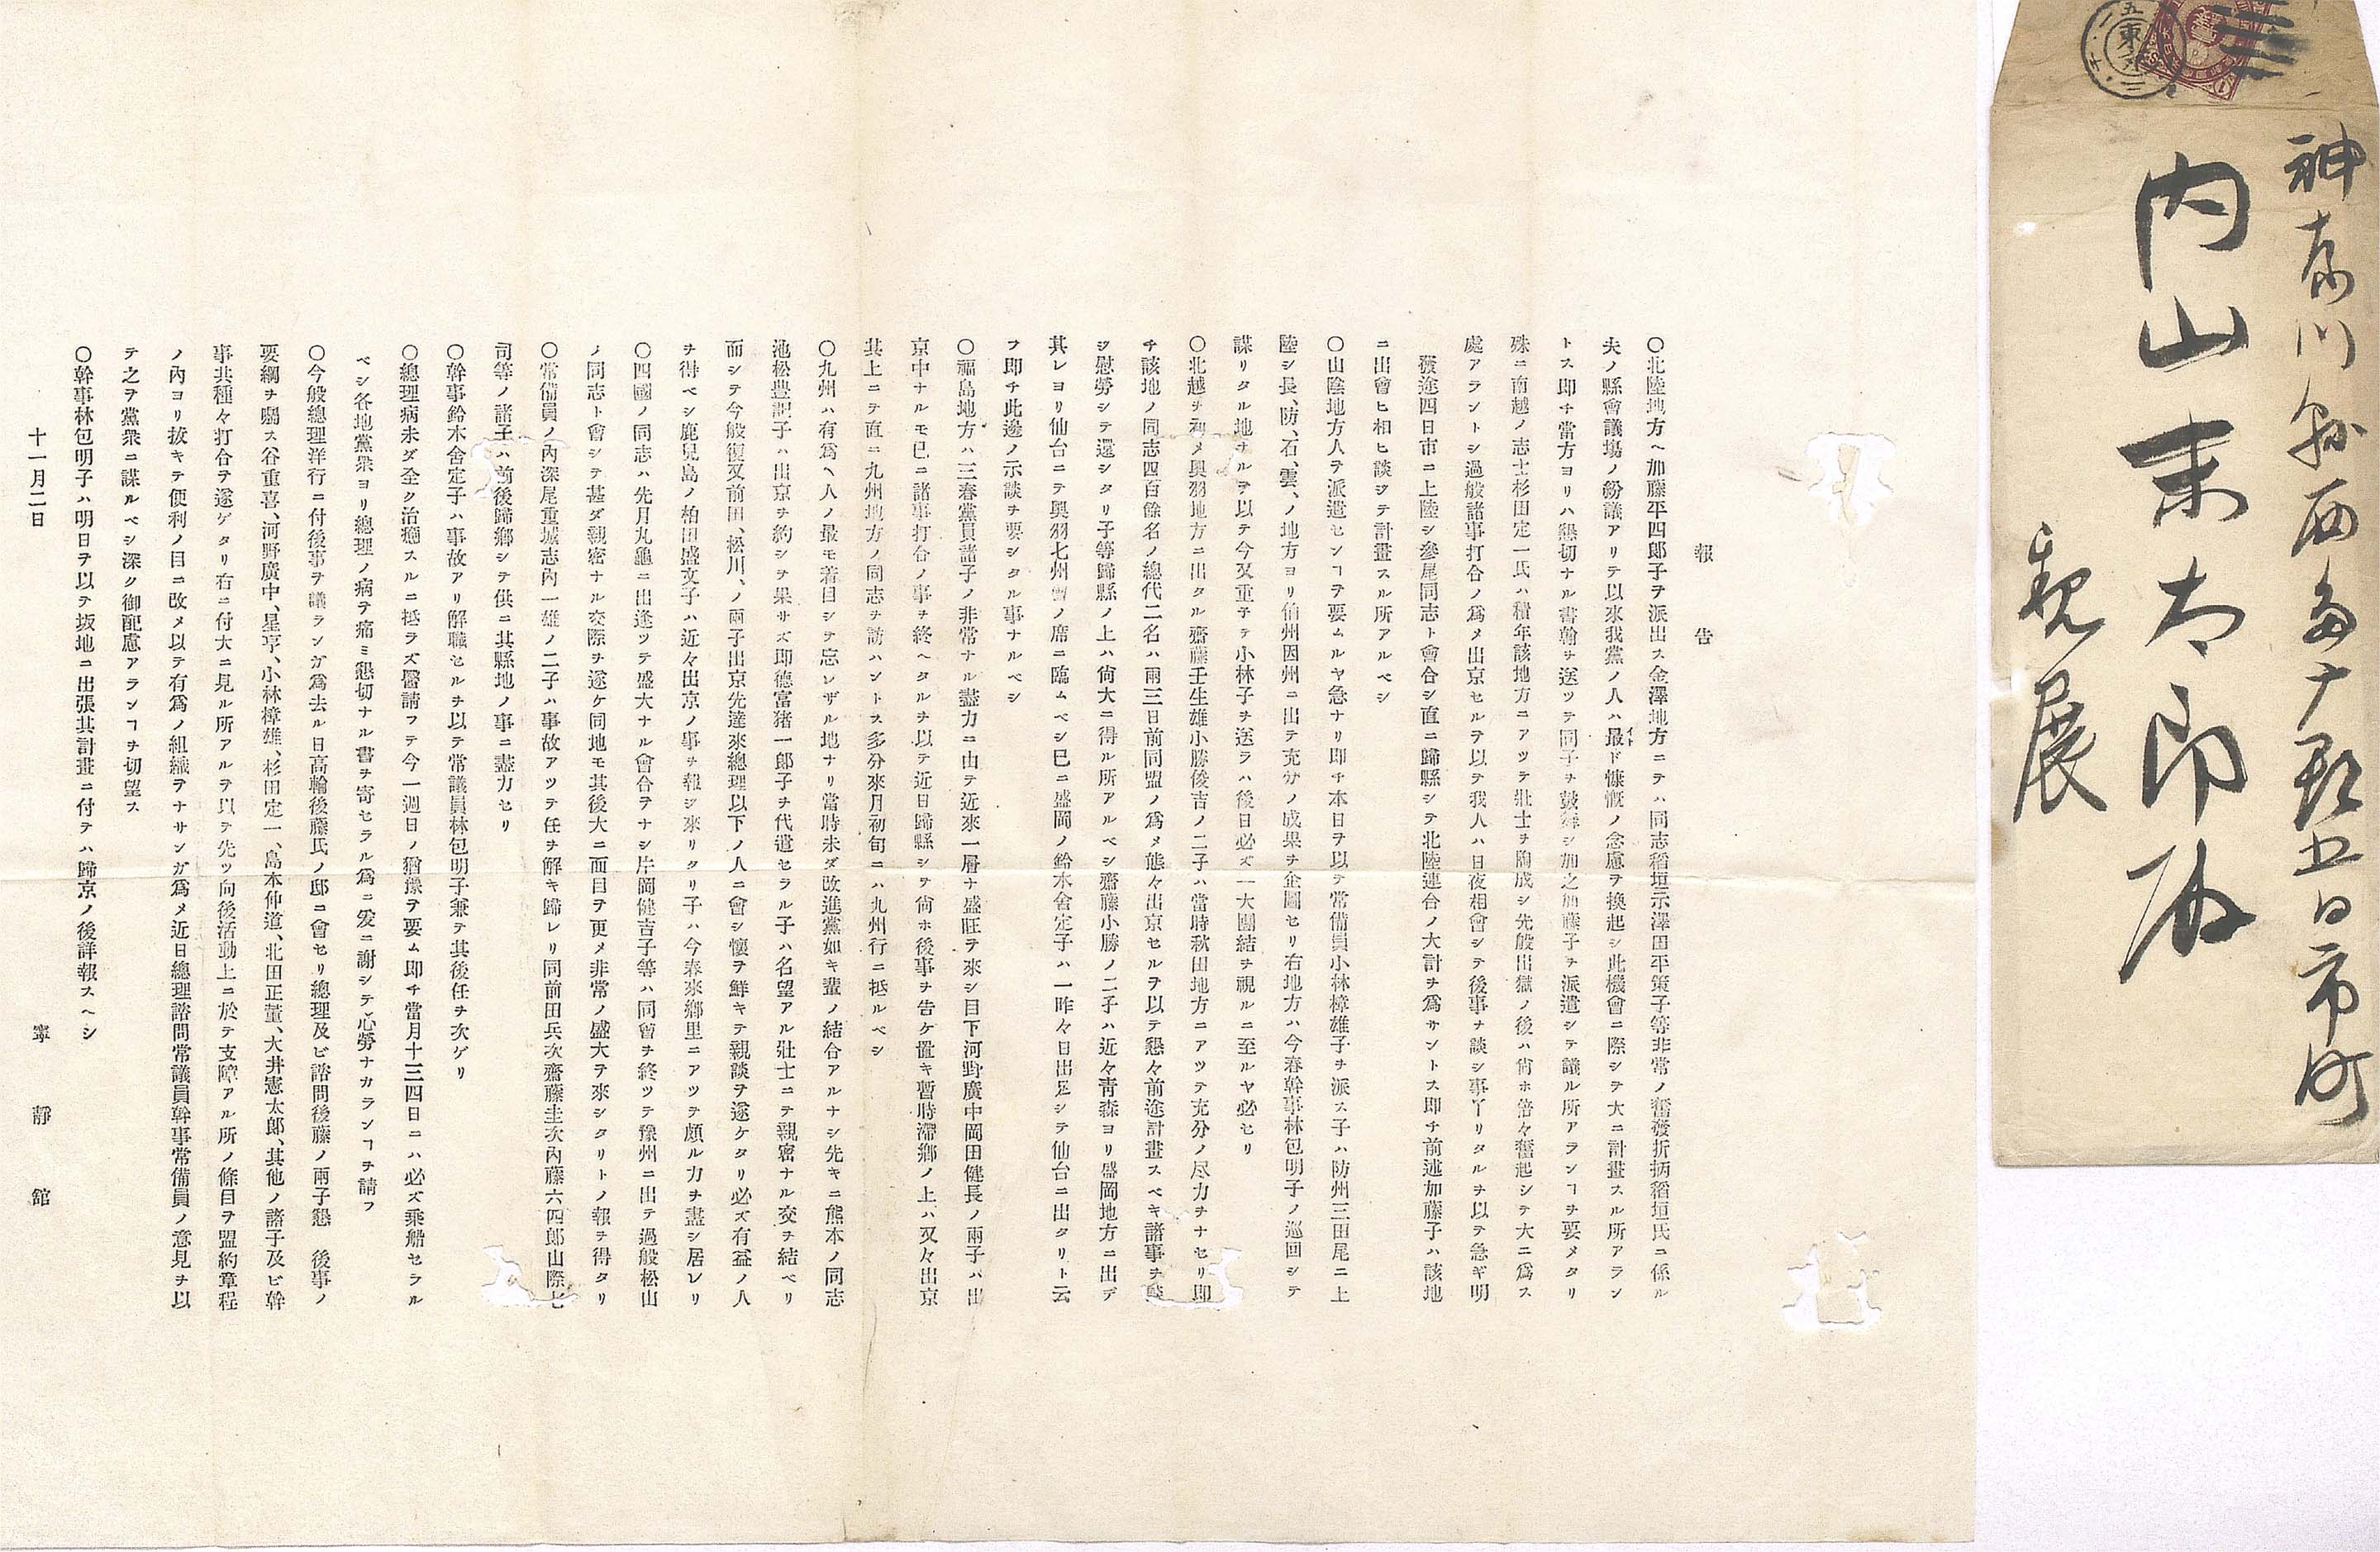 神奈川縣西多广郡五日市町
内山末太郎殿
親展
報告
〇北陸地方ヘ加藤平四郎子ヲ派出ス金澤地方ニテハ同志稻垣示澤田平策子等非常ノ奮發折柄稻垣氏ニ係ル
夫ノ縣會議塲ノ紛議アリテ以來我黨ノ人ハ最ド慷慨ノ念慮ヲ換起シ此機會ニ際シテ大ニ計畫スル所アラン
トス即チ當方ヨリハ懇切ナル書翰ヲ送ツテ同子ヲ鼓舞シ加之加藤子ヲ派遣シテ議ル所アランヿヲ要メタリ
殊ニ南越ノ志士杉田定一氏ハ積年該地方ニアツテ壯士ヲ陶成シ先般出獄ノ後ハ尙ホ倍々奮起シテ大ニ爲ス
處アラントシ過般諸事打合ノ爲メ出京セルヲ以テ我人ハ日夜相會シテ後事ヲ談シ事了リタルヲ以テ急ギ明
發途四日市ニ上陸シ參尾同志ト會合シ直ニ歸縣シテ北陸連合ノ大計ヲ爲サントス即チ前述加藤子ハ該地
ニ出會ヒ相ヒ談シテ計畫スル所アルベシ
〇山陰地方人ヲ派遣センヿヲ要ムルヤ急ナリ即チ本日ヲ以テ常備員小林樟雄子ヲ派ス子ハ防州三田尾ニ上
陸シ長、防、石、雲、ノ地方ヨリ伯州因州ニ出テ充分ノ成果ヲ企圖セリ右地方ハ今春幹事林包明子ノ巡回シテ
謀リタル地ナルヲ以テ今又重子テ小林子ヲ送ラハ後日必ズ一大團結ヲ視ルニ至ルヤ必セリ
〇北越ヲ初メ奧羽地方ニ出タル齋藤壬生雄小勝俊吉ノ二子ハ當時秋田地方ニアツテ充分ノ尽力ヲナセリ即
チ該地ノ同志四百餘名ノ總代二名ハ兩三日前同盟ノ爲メ態々出京セルヲ以テ懇々前途計畫スベキ諸事ヲ談
シ慰勞シテ還シタリ子等歸縣ノ上ハ尙大ニ得ル所アルベシ齋藤小勝ノ二子ハ近々青森ヨリ盛岡地方ニ出デ
其レヨリ仙台ニテ奧羽七州會ノ席ニ臨ムベシ已ニ盛岡ノ鈴木舍定子ハ一昨々日出足シテ仙台ニ出タリト云
フ即チ此邊ノ示談ヲ要シタル事ナルベシ
〇福島地方ハ三春黨員諸子ノ非常ナル盡力ニ由テ近來一層ナ盛旺ヲ來シ目下河野廣中岡田健長ノ兩子ハ出
京中ナルモ已ニ諸事打合ノ事ヲ終ヘタルヲ以テ近日歸縣シテ尙ホ後事ヲ告ケ置キ暫時滯鄕ノ上ハ又々出京
其上ニテ直ニ九州地方ノ同志ヲ訪ハントス多分來月初旬ニハ九州行ニ抵ルベシ
〇九州ハ有爲ヘ人ノ最モ着目シテ忘レザル地ナリ當時未ダ改進黨如キ輩ノ結合アルナシ先キニ熊本ノ同志
池松豊記子ハ出京ヲ約シテ果サズ即德富猪一郎子ヲ代遣セラル子ハ名望アル壯士ニテ親密ナル交ヲ結ベリ
而シテ今般復又前田、松川、ノ兩子出京先達來總理以下ノ人ニ會シ懷ヲ鮮キテ親談ヲ遂ケタリ必ズ有益ノ人
ヲ得ベシ鹿兒島ノ柏田盛文子ハ近々出京ノ事ヲ報シ來リタリ子ハ今春來鄕里ニアツテ頗ル力ヲ盡シ居レリ
〇四國ノ同志ハ先月丸龜ニ出逢ツテ盛大ナル會合ヲナシ片岡健吉子等ハ同會ヲ終ツテ豫州ニ出テ過般松山
ノ同志ト會シテ甚ダ親密ナル交際ヲ遂ケ同地モ其後大ニ面目ヲ更メ非常ノ盛大ヲ來シタリトノ報ヲ得タリ
〇常備員ノ內深尾重城志內一雄ノ二子ハ事故アツテ任ヲ解キ歸レリ同前田兵次齋藤圭次內藤六四郎山際七
司等ノ諸子ハ前後歸鄕シテ供ニ其縣地ノ事ニ盡力セリ
〇幹事鈴木舍定子ハ事故アリ解職セルヲ以テ常議員林包明子兼テ其後任ヲ次ゲリ
〇總理病未ダ全ク治癒スルニ抵ラズ醫請フテ今一週日ノ猶豫ヲ要ム即チ當月十三四日ニハ必ズ乘船セラル
ベシ各地黨衆ヨリ總理ノ病ヲ痛ミ懇切ナル書ヲ寄セラル爲ニ爰ニ謝シテ心勞ナカランヿヲ請フ
〇今般總理洋行ニ付後事ヲ議ランガ爲去ル日高輪後藤氏ノ邸ニ會セリ總理及ビ諮問後藤ノ兩子懇 後事ノ
要綱ヲ囑ス谷重喜、河野廣中、星亨、小林樟雄、杉田定一、島本仲道、北田正董、大井憲太郎、其他ノ諸子及ビ幹
事共種々打合ヲ遂ゲタリ右ニ付大ニ見ル所アルヲ以テ先ツ向後活動上ニ於テ支障アル所ノ條目ヲ盟約章程
ノ內ヨリ拔キテ便利ノ目ニ改メ以テ有爲ノ組織ヲナサンガ爲メ近日總理諮問常議員幹事常備員ノ意見ヲ以
テ之ヲ黨衆ニ謀ルベシ深ク御配慮アランヿヲ切望ス
〇幹事林包明子ハ明日ヲ以テ坂地ニ出張其計畫ニ付テハ歸京ノ後詳報スヘシ
十一月二日
寧靜館